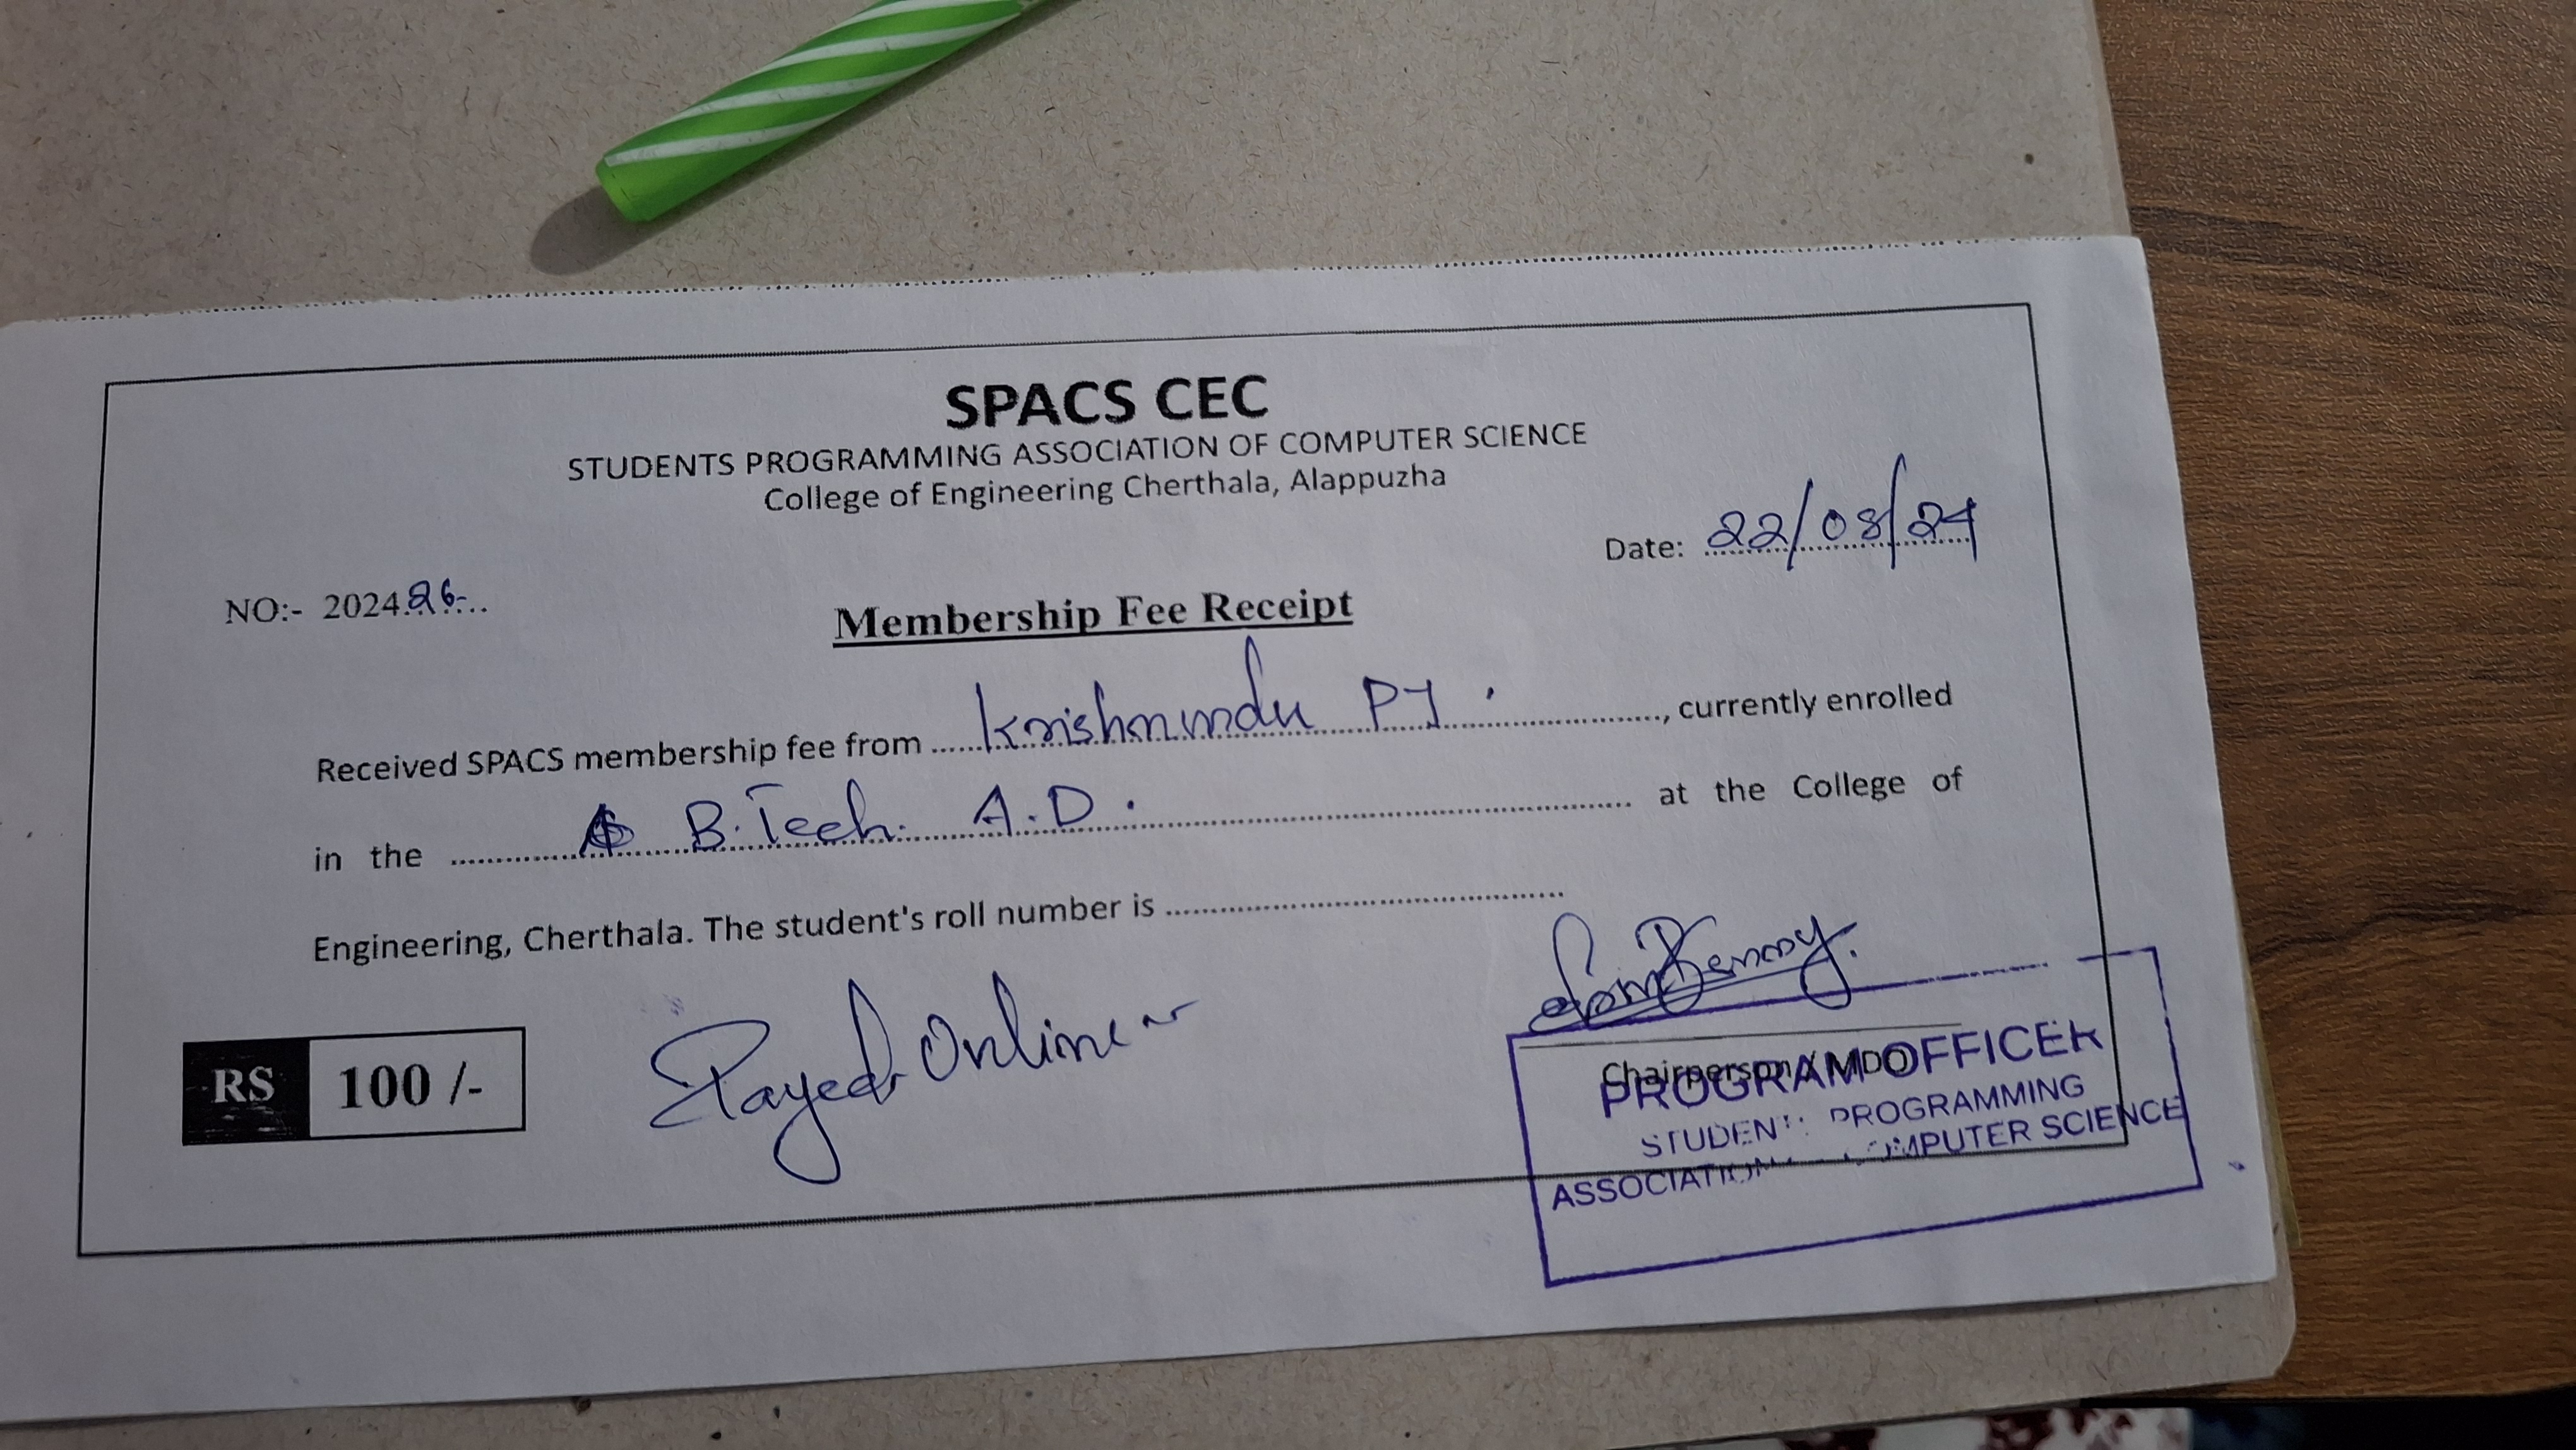 SPACS CEC
STUDENTS PROGRAMMING ASSOCIATION OF COMPUTER SCIENCE
College of Engineering Cherthala, Alappuzha
Date: 22/08/24
NO:- 202426
Membership Fee Receipt
Received SPACS membership fee from Krishnanndu PJ, currently enrolled
in the B.Tech A.D. at the College of
Engineering, Cherthala. The student's roll number is
RS 100 /-
Payed Online
Chairperson
PROGRAM OFFICER
STUDENTS PROGRAMMING
ASSOCIATION COMPUTER SCIENCE